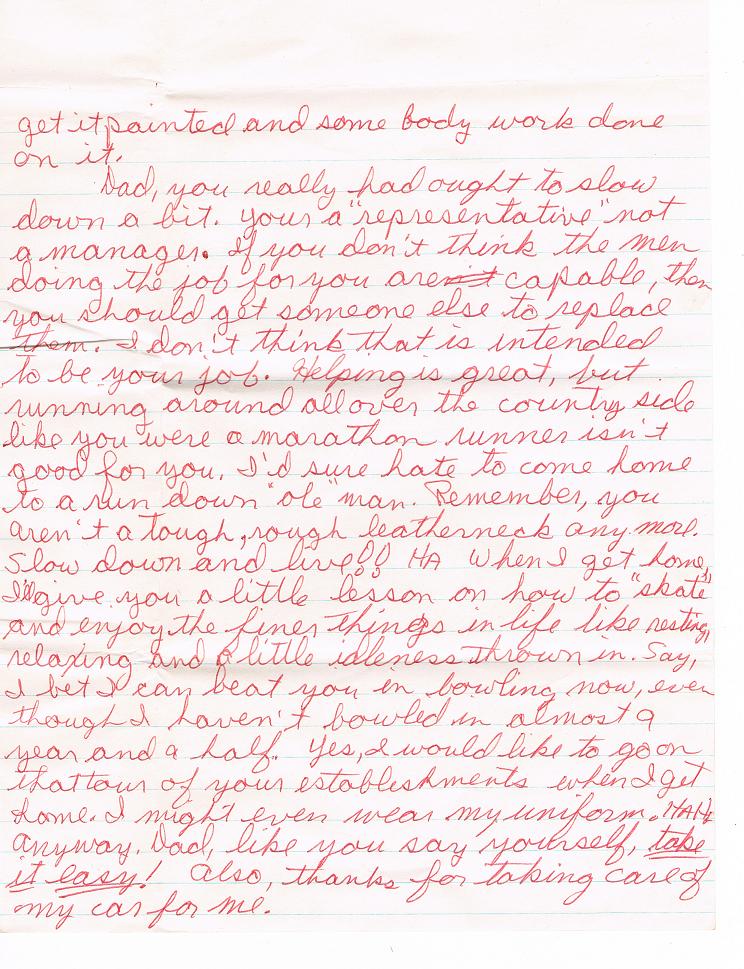 get it painted and some body work done
on it.
Dad, you really had ought to slow
down a bit. your a "representative" not
a manager. If you don't think the men
doing the job for you aren't capable, then
you should get someone else to replace
them. I don't think that is intended
to be your job. Helping is great, but
running around all over the country side
like you were a marathon runner isn't
good for you. I'd sure hate to come home
to a run down "ole" man. Remember, you
aren't a tough, rough leatherneck any more.
Slow down and live!! HA When I get home,
I'll give you a little lesson on how to "skate"
and enjoy the finer things in life like resting,
relaxing and a little idleness thrown in. Say,
I bet I can beat you in bowling now, even
though I haven't bowled in almost a
year and a half. Yes, I would like to go on
that tour of your establishments when I get
home. I might even wear my uniform. HAHA
anyway. Dad, like you say yourself, take
it easy! Also, thanks for taking care of
my car for me.